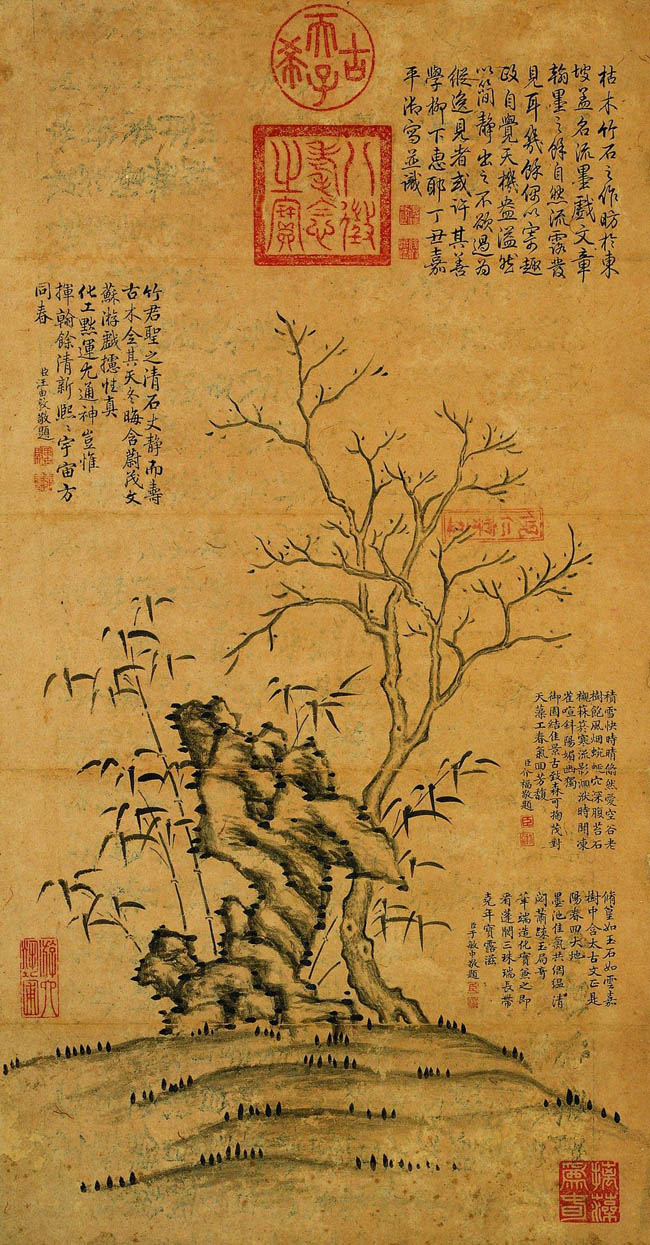 古希天子
八徵耄念之寶
枯木竹石之作昉於東
坡蓋名流墨戲文章
翰墨之餘自然流露發
見耳幾餘偶以寄趣
政自覺天機盎溢然
以簡靜出之不欲過為
縱逸見者或許其善
學柳下惠耶丁丑嘉
平御寫並識
竹君聖之清石丈靜而壽
古木全其天冬晦含蔚茂文
蘇游戲攄性真
化工默運尤通神豈惟
揮翰餘清新熙〻宇宙方
同春
臣汪由敦敬題
積雪快時晴悠然愛空谷老
樹飽風烟蜿蜒穴深腹苔石
櫬箖箊寒流影洄洑時聞凍
雀喧斜陽媚幽獨
御園結佳景古致森可掬茂對
天藻工春氣回芳馥
臣介福敬題
脩篁如玉石如雲嘉
樹中含太古文正是
陽春四天地
墨池佳氣共絪縕清
閟蕭疎玉局奇
筆端造化寶兼之即
看蓬閬三珠瑞長帶
堯年寶露滋
臣于敏中敬題
摛藻為春